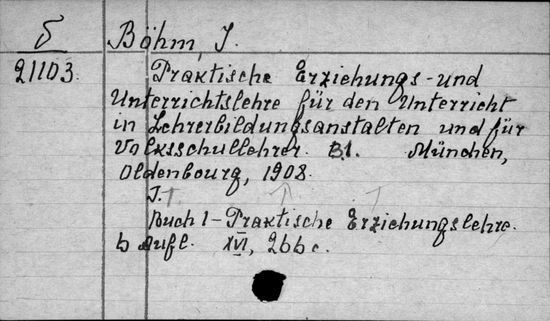 Б Böhm, J.
21103. Praktische Erziehungs- und
Unterrichtslehre für den Unterricht
in Lehrerbildungsanstalten und für
Volksschullehrer. B1. München,
Oldenbourg, 1908.
J.
Buch 1 - Praktische Erziehungslehre.
6 Aufl. XVI, 266 c.